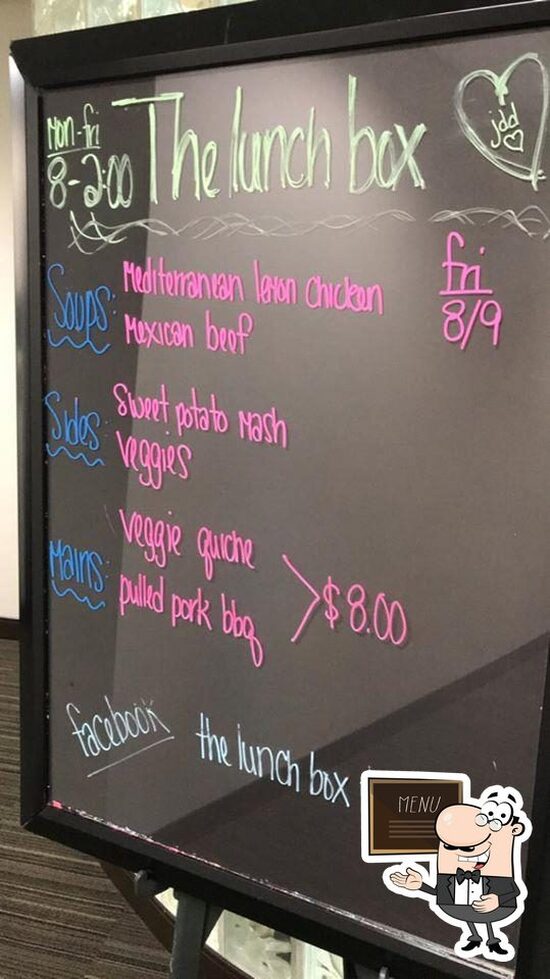 Mon-fri
8-2:00
The lunch box
jdd
fri
8/9
Soups: Mediterranean lemon chicken
Mexican beef
Sides: Sweet potato Mash
Veggies
Mains: Veggie quiche
pulled pork bbq
$8.00
facebook the lunch box
MENU